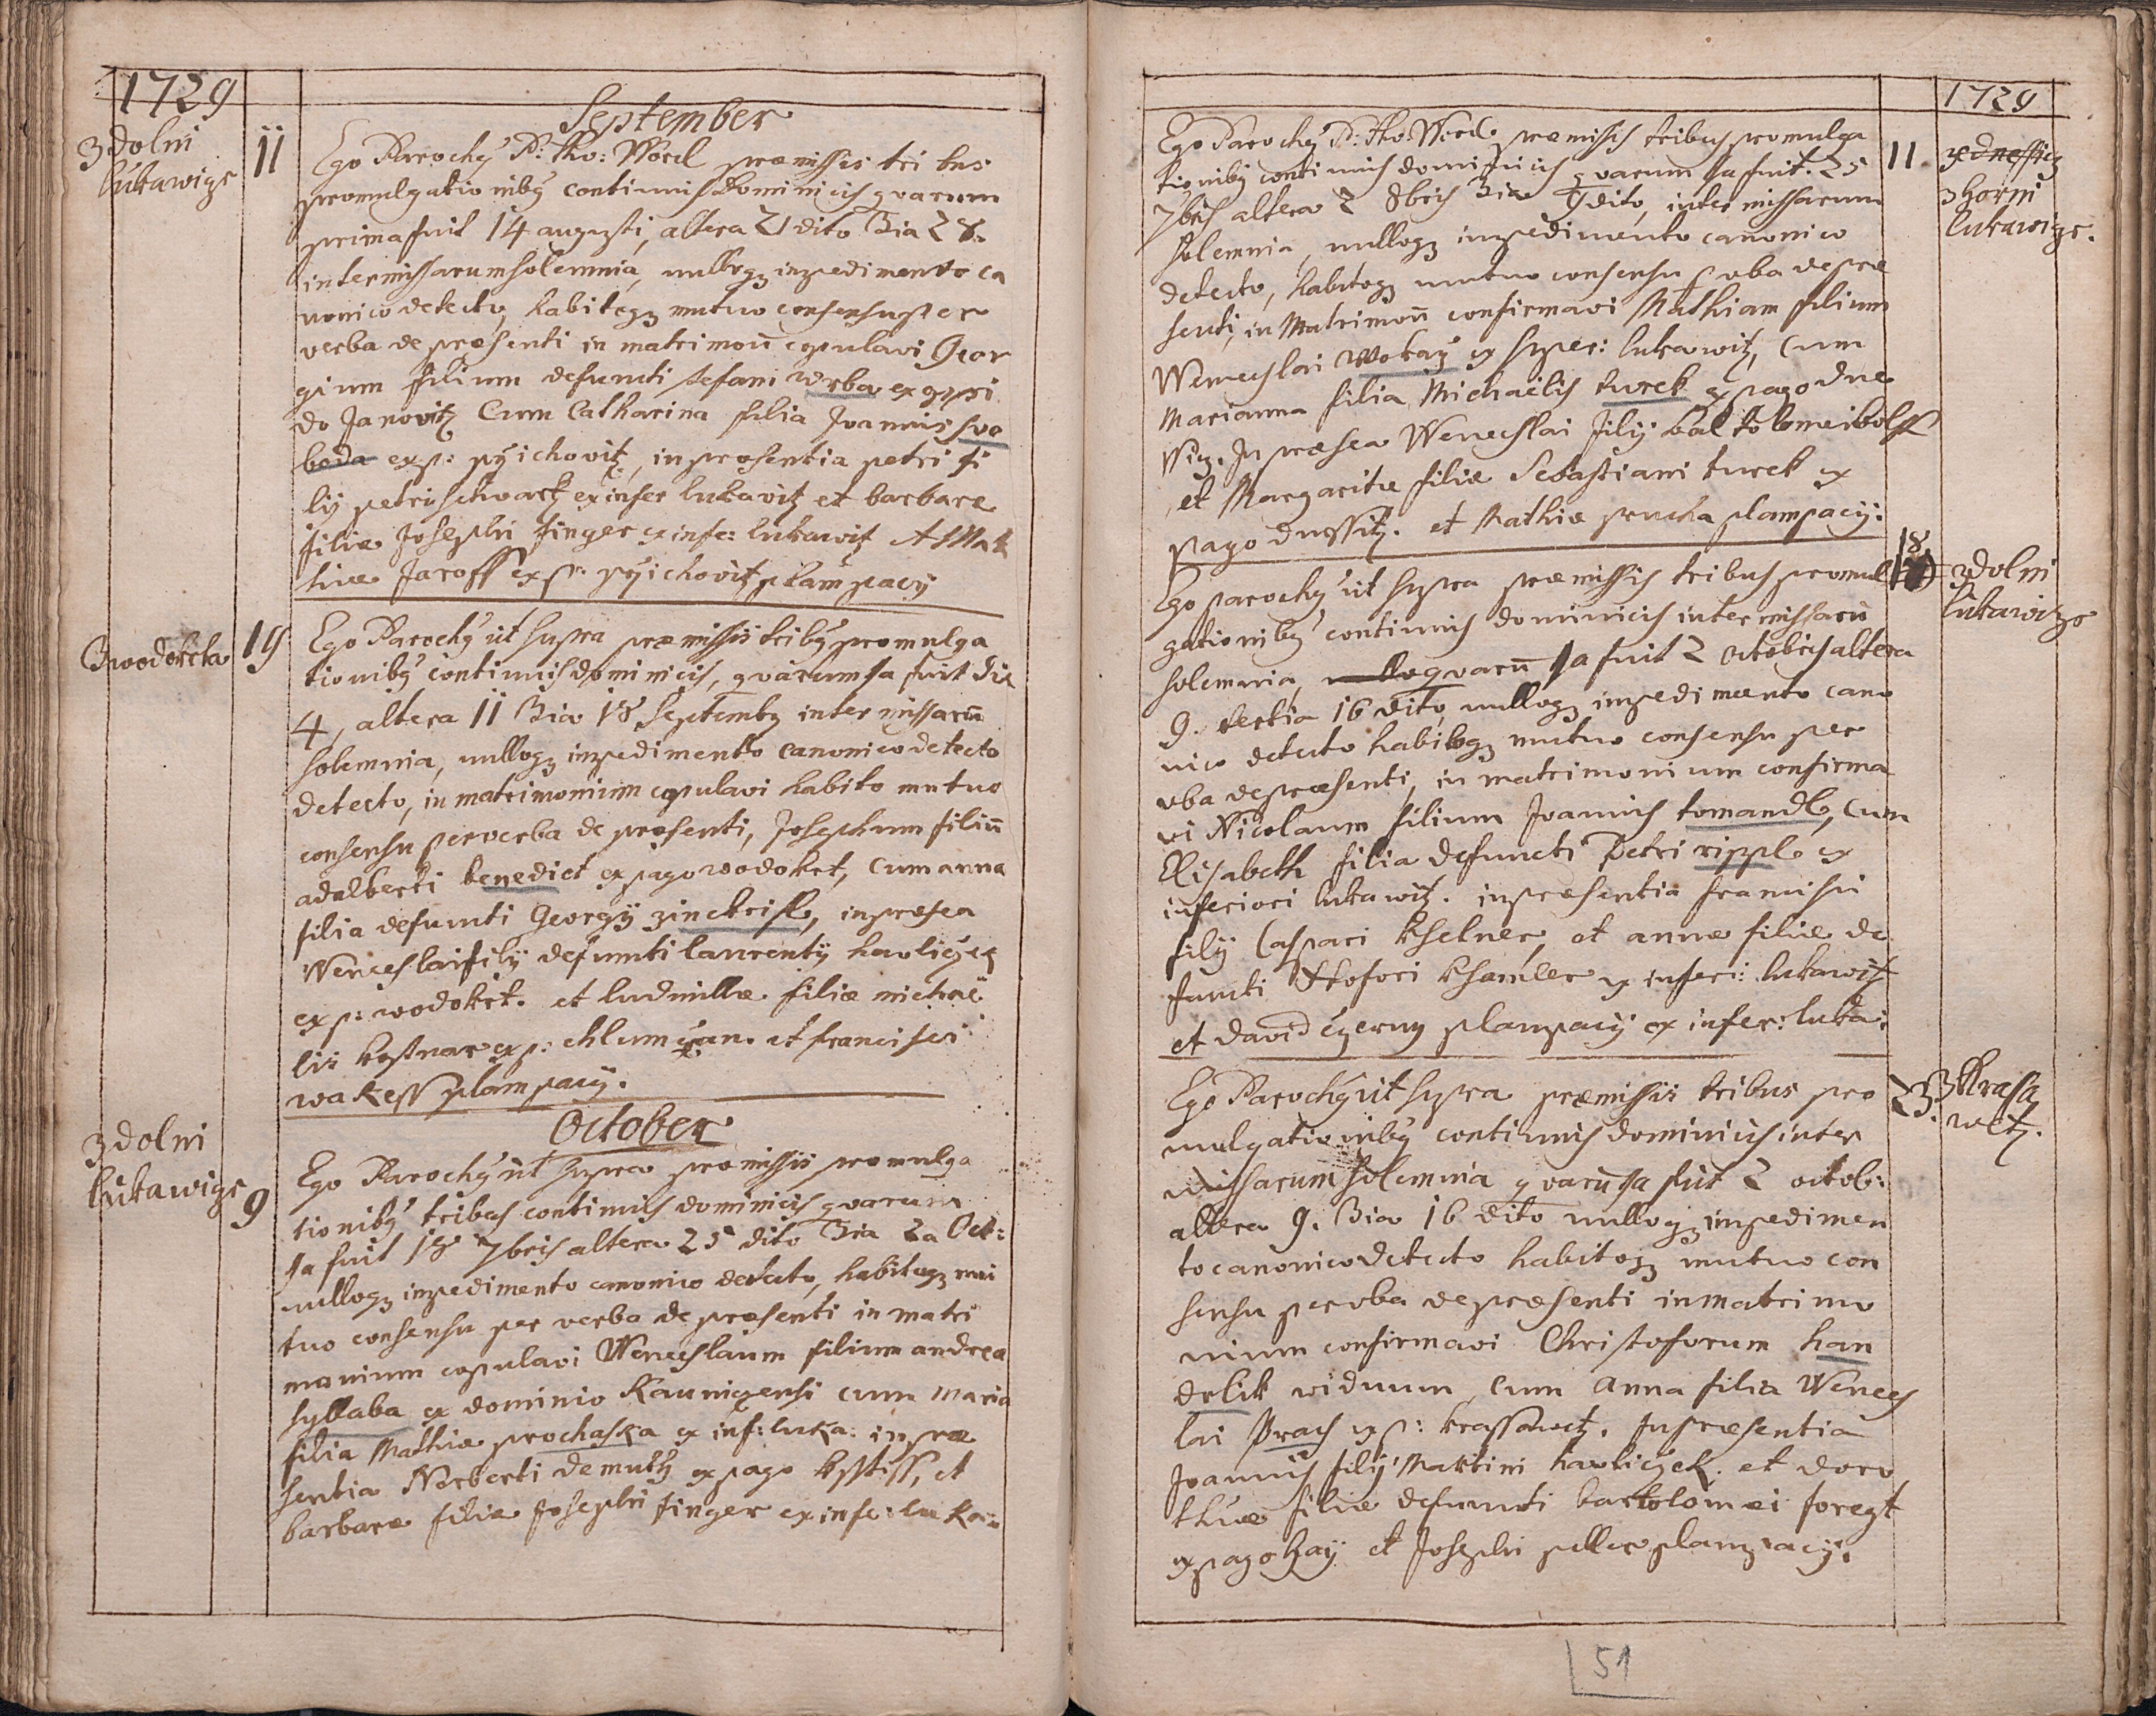 1729
September
z dolni
lukawize
11
Ego Parochy P: Tho: Worel præmissis tri bus
promulgatio niby continuis Dominicis quarum
prima fuit 14 augusti, altera 21 dito 3ia 28.
inter missarum solemnia, nulloq impedimento ca
nonico detecto, habitoq mutuo consensu per
verba de præsenti in matrimoũ copulavi Geor
gium filium defuncti stefani wrba ex oppi
do Janovitz Cum Catharina filia Joannis svo
boda ex p: pÿichovitz, in præsentia petri fi
lij petri schwartz ex infer lukavitz et barbaræ
filiæ Josephi finger ex infe: lukawitz et Mat
hiæ Jaross ex p: pÿichovitz plampacij
z wodokrt
19
Ego Parochy ut supra præmissis triby promulga
tioniby continuis dominicis, quarum 1a fuit die
4, altera 11 3ia 18 septemby inter missarũ
solemnia, nulloq impedimento canonico detecto
detecto, in matrimonium copulavi habito mutuo
consensu per verba de præsenti, Josephum filiũ
adalberti benedict ex pago wodokrt, cum anna
filia defuncti Georgÿ zinckrisl, in præsen
Wenceslai filÿ defuncti laurentÿ havliczek
ex p: wodokrt. et ludmillæ filiæ michae
lis kostnar ex p: chlumczan. et francisci
wakess plampacÿ.
October
z dolni
lukawize
9
Ego Parochy ut supra præmissis promulga
tioniby tribus continuis dominicis quarum
1a fuit 18 7bris altera 25 dito 3ia 2a Oct:
nulloq impedimento canonico detecto, habitoq mu
tuo consensu per verba de præsenti in matri
monium copulavi Wenceslaum filium andrea
syllaba ex dominio Kaunizensi cum Maria
filia Mathiæ prochaska ex inf: luka: in præ
sentia Norberti demuth ex pago kbstiss, et
barbaræ filiæ Josephi finger ex infe: luka:
1729
Ego Parochy P: Tho: Worel præmissis tribus promulga
tioniby continuis dominicis quarum 1a fuit 25
7bris altera 2 8bris 3ia 9 dito, inter missarum
solemnia, nulloq impedimento canonico
detecto, habitoq mutuo consensu p vba de præ
senti, in Matrimoũ confirmavi Mathiam filium
Wenceslai wokaÿ ex super: lukawitz, Cum
Marianna filia Michaëlis turek ex pago dne
In præsen Wenceslai filÿ
et Margaritæ filiæ Sebastiani turek ex
pago dnessitz. et Mathiæ prucha plampacÿ.
11
z dnessicz
z horni
lukawize.
Ego parochy ut supra præmissis tribus promul
gationiby continuis dominicis inter missarũ
solemnia, quarũ 1a fuit 2 octobris altera
9. tertia 16 dito, nulloq impedimento cano
nico detecto habitoq mutuo consensu per
vba de præsenti, in matrimonium confirma
vi Nicolaum filium Joannis tomandl, Cum
Elisabeth filia defuncti Petri rippl ex
inferiori lukawitz. in præsentia francisci
filÿ Caspari kselner, et annæ filiæ de
functi Xtofori ksamler ex inferi: lukawitz
et david czerny plampacÿ ex infer: luka:
18
z dolni
lukawize
Ego Parochy ut supra præmissis tribus pro
mulgationiby continuis dominicis inter
missarum solemnia quarũ 1a fuit 2 octob:
altera 9. 3ia 16 dito nulloq impedimen
to canonico detecto habitoq mutuo con
sensu per vba de præsenti in matrimo
nium confirmavi Christoforum han
drlik viduum, Cum anna filia Wences
lai Prach ex p: krassowetz. In præsentia
Joannis filÿ Martini havliczek. et doro
theæ filiæ defuncti bartolomæi foregt
ex pago haÿ et Josephi peller plampacÿ.
23.
z krasa
wetz.
51